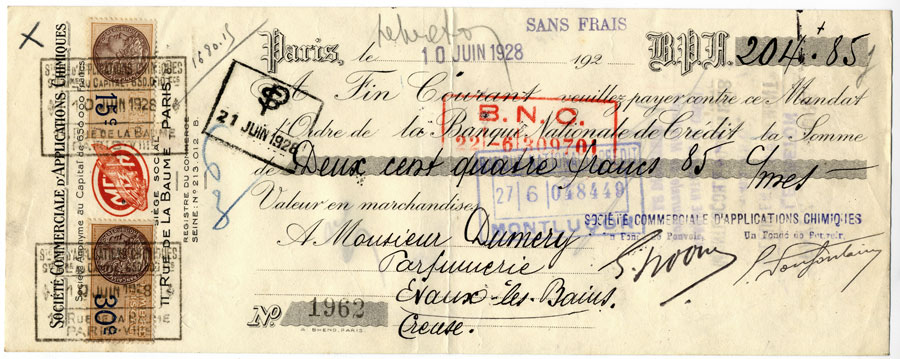 SANS FRAIS
Paris, le 10 JUIN 1928 192
B.P.F. 204 + 85
A Fin Courant veuillez payer contre ce Mandat
à l'Ordre de la Banque Nationale de Crédit la Somme
de Deux cent quatre francs 85 c/mes
Valeur en marchandises
A Monsieur Dumery
Parfumerie
Evaux-les-Bains.
Creuse.
No 1962
21 JUIN 1928
B.N.C.
22-6 309701
27 6 048449
MONTLUÇON
SOCIÉTÉ COMMERCIALE D'APPLICATIONS CHIMIQUES
Un Fondé de Pouvoir.
SOCIÉTÉ COMMERCIALE D'APPLICATIONS CHIMIQUES
Société Anonyme au Capital de 650.000 Francs
SIÈGE SOCIAL
11, RUE DE LA BAUME, PARIS
REGISTRE DU COMMERCE
SEINE: No 213.012 B.
15c
30c
10 JUIN 1928
RUE DE LA BAUME
PARIS-VIIIe